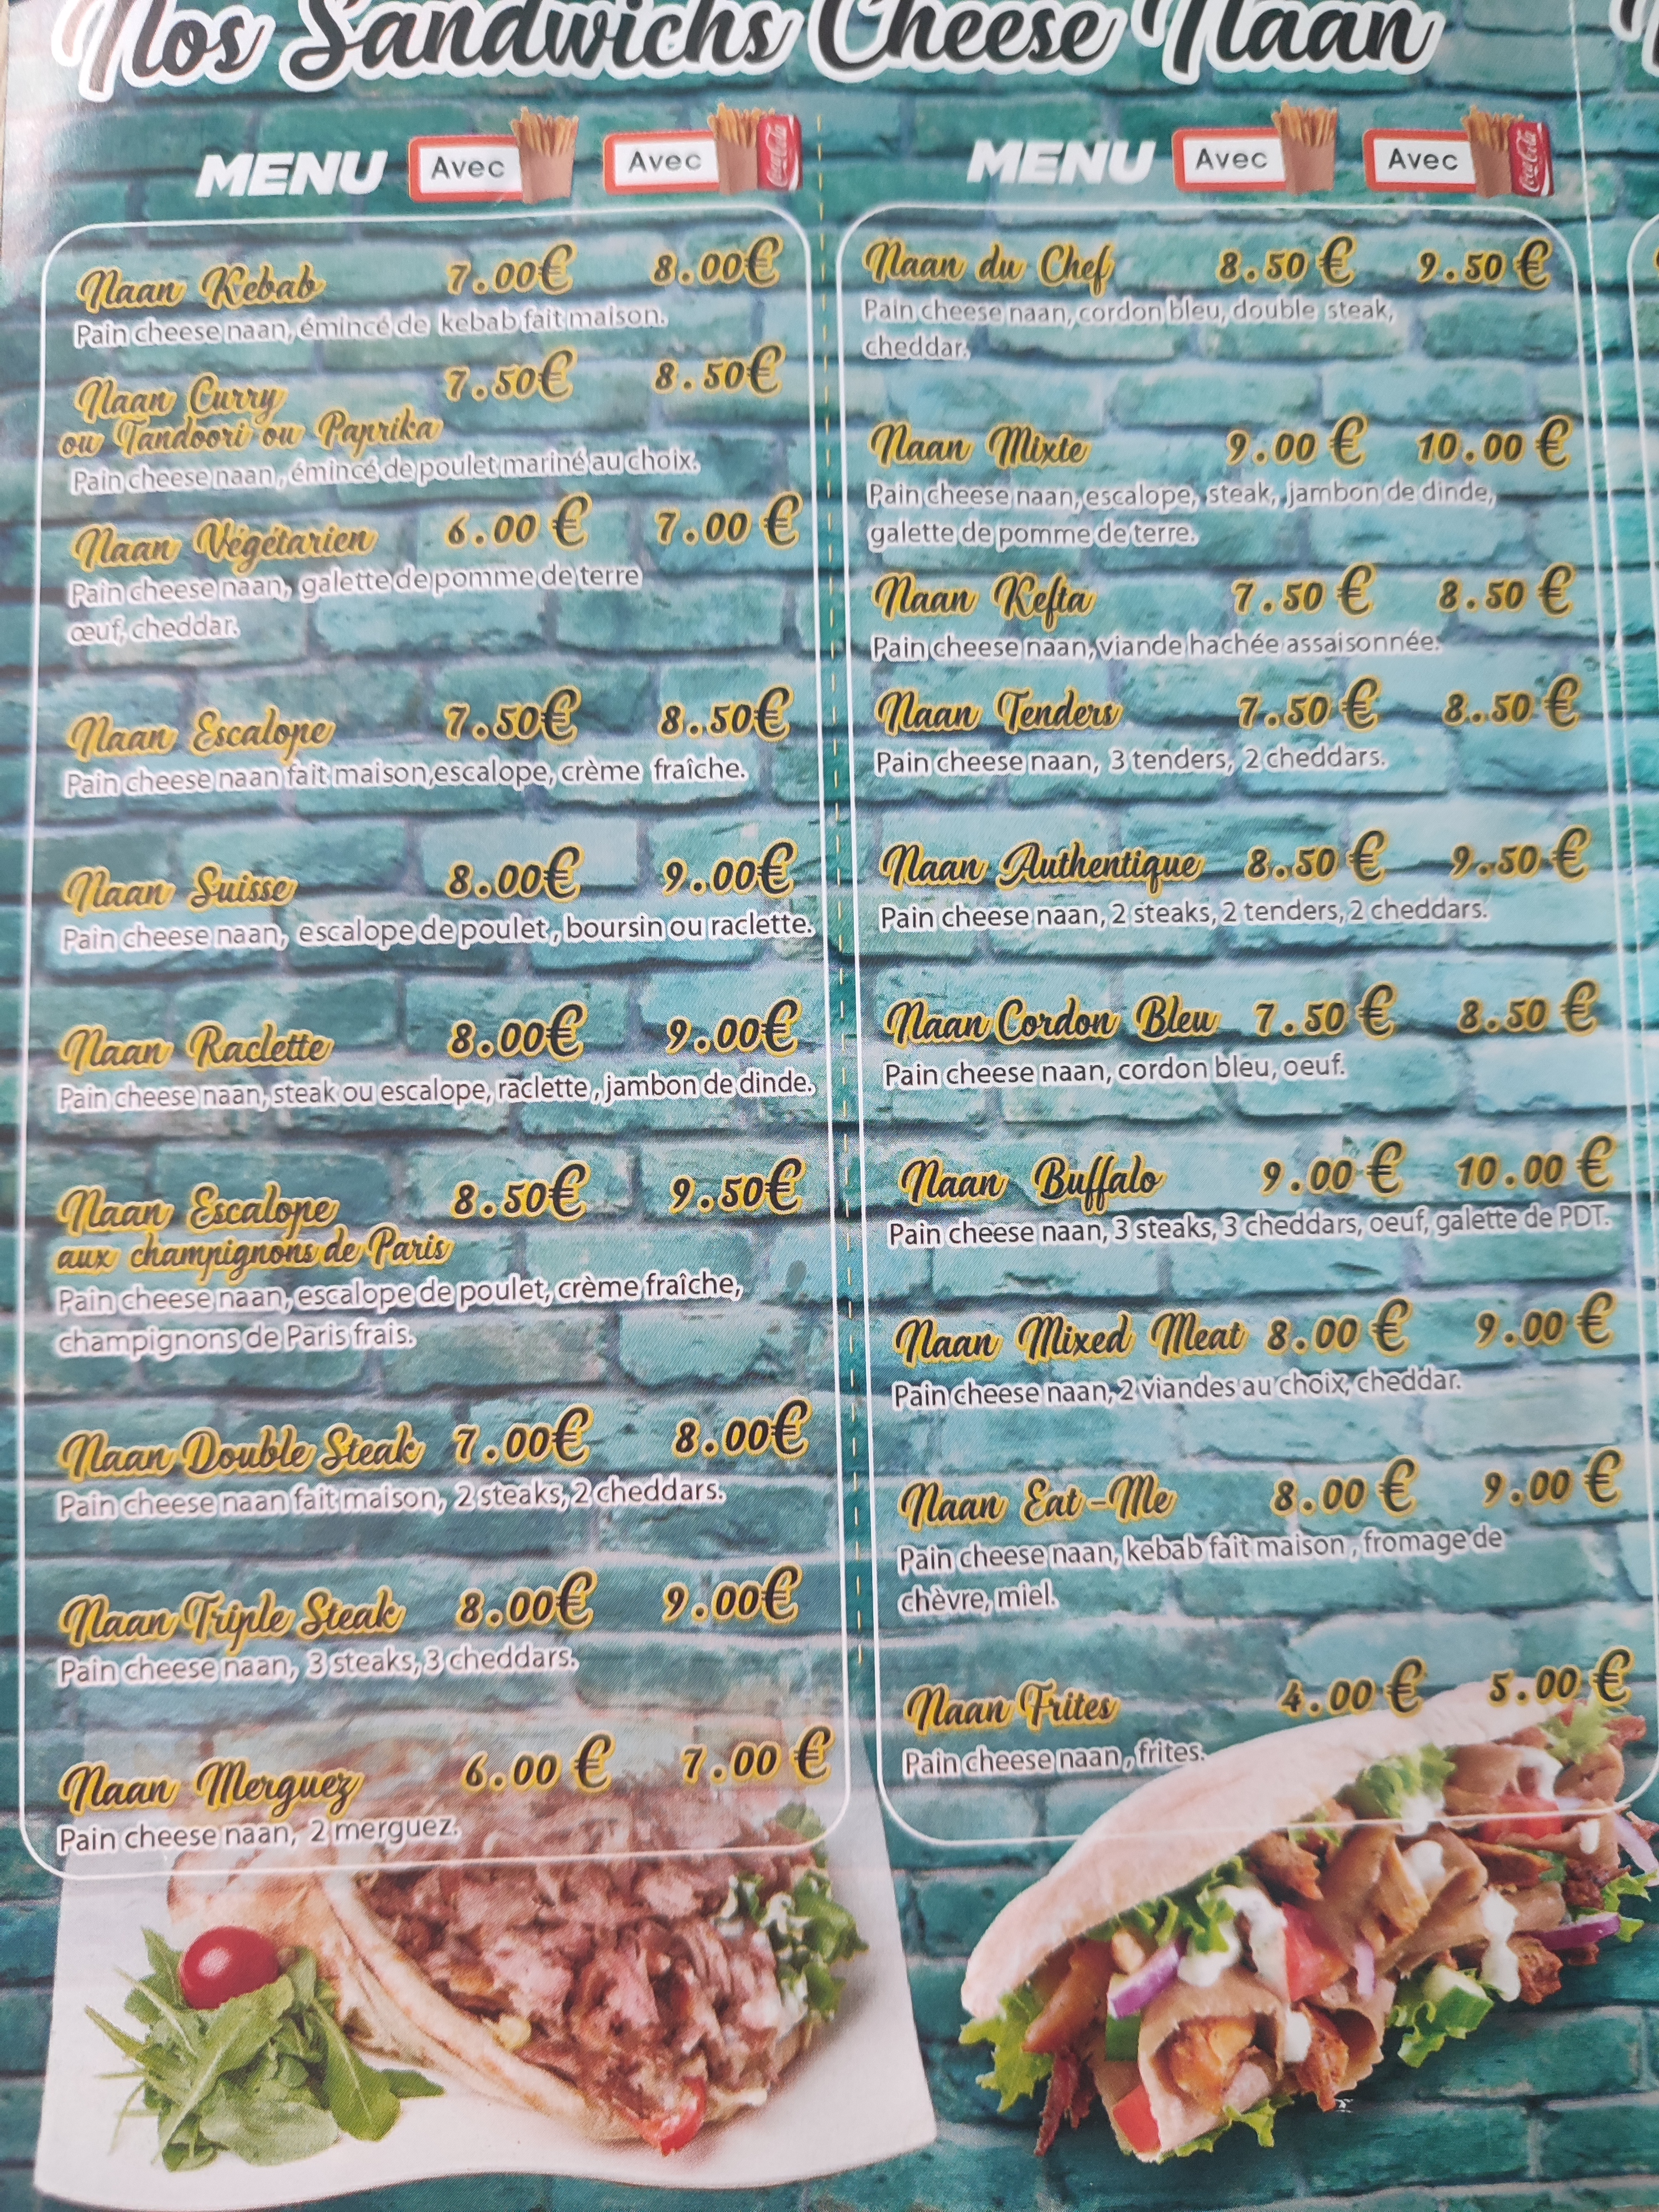 Nos Sandwichs Cheese Naan
MENU Avec Avec Coca-Cola
Naan Kebab 7.00€ 8.00€
Pain cheese naan, émincé de kebab fait maison.
Naan Curry 7.50€ 8.50€
ou Tandoori ou Paprika
Pain cheese naan, émincé de poulet mariné au choix.
Naan Végétarien 6.00 € 7.00 €
Pain cheese naan, galette de pomme de terre
œuf, cheddar.
Naan Escalope 7.50€ 8.50€
Pain cheese naan fait maison,escalope, crème fraîche.
Naan Suisse 8.00€ 9.00€
Pain cheese naan, escalope de poulet, boursin ou raclette.
Naan Raclette 8.00€ 9.00€
Pain cheese naan, steak ou escalope, raclette, jambon de dinde.
Naan Escalope 8.50€ 9.50€
aux champignons de Paris
Pain cheese naan, escalope de poulet, crème fraîche,
champignons de Paris frais.
Naan Double Steak 7.00€ 8.00€
Pain cheese naan fait maison, 2 steaks, 2 cheddars.
Naan Triple Steak 8.00€ 9.00€
Pain cheese naan, 3 steaks, 3 cheddars.
Naan Merguez 6.00 € 7.00 €
Pain cheese naan, 2 merguez.
MENU Avec Avec Coca-Cola
Naan du Chef 8.50 € 9.50 €
Pain cheese naan, cordon bleu, double steak,
cheddar.
Naan Mixte 9.00 € 10.00 €
Pain cheese naan, escalope, steak, jambon de dinde,
galette de pomme de terre.
Naan Kefta 7.50 € 8.50 €
Pain cheese naan, viande hachée assaisonnée.
Naan Tenders 7.50 € 8.50 €
Pain cheese naan, 3 tenders, 2 cheddars.
Naan Authentique 8.50 € 9.50 €
Pain cheese naan, 2 steaks, 2 tenders, 2 cheddars.
Naan Cordon Bleu 7.50 € 8.50 €
Pain cheese naan, cordon bleu, oeuf.
Naan Buffalo 9.00 € 10.00 €
Pain cheese naan, 3 steaks, 3 cheddars, oeuf, galette de PDT.
Naan Mixed Meat 8.00 € 9.00 €
Pain cheese naan, 2 viandes au choix, cheddar.
Naan Eat-Me 8.00 € 9.00 €
Pain cheese naan, kebab fait maison, fromage de
chèvre, miel.
Naan Frites 4.00 € 5.00 €
Pain cheese naan, frites.